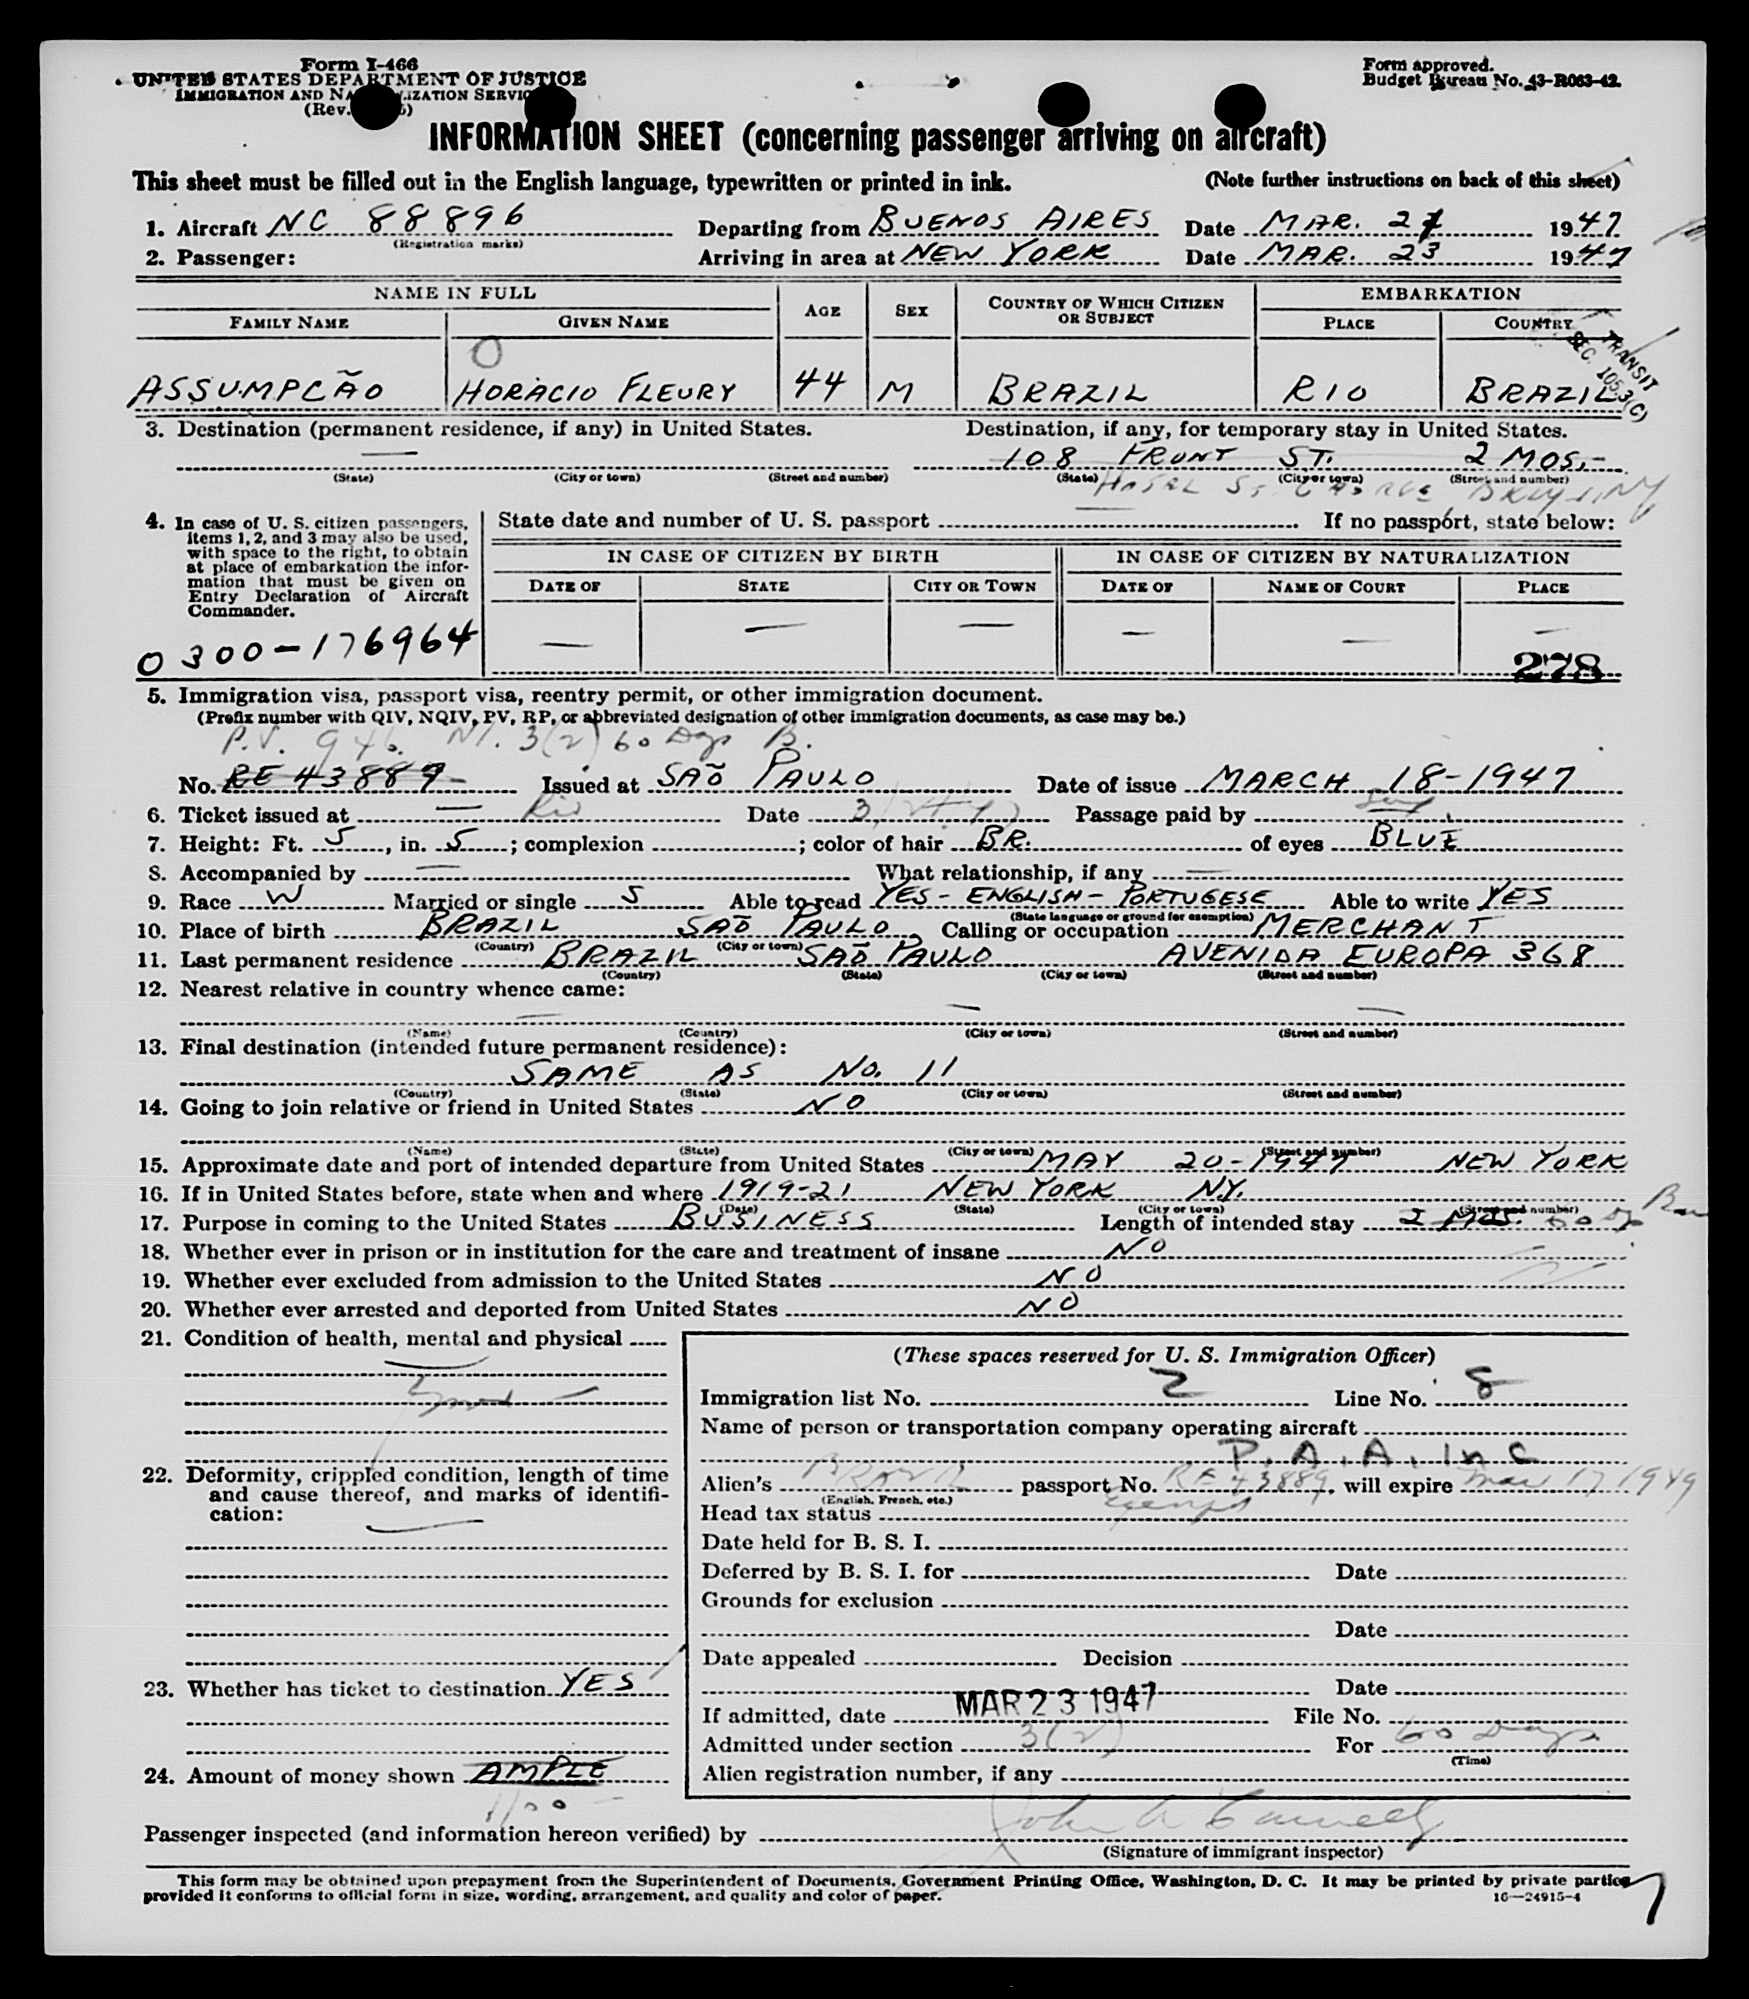 Form I-466
UNITED STATES DEPARTMENT OF JUSTICE
IMMIGRATION AND NATURALIZATION SERVICE
(Rev.
Form approved.
Budget Bureau No. 43-R063-42.
INFORMATION SHEET (concerning passenger arriving on aircraft)
This sheet must be filled out in the English language, typewritten or printed in ink.
(Note further instructions on back of this sheet)
1. Aircraft NC 88896 Departing from BUENOS AIRES Date MAR. 21 1947
(Registration marks)
2. Passenger: Arriving in area at NEW YORK Date MAR. 23 1947
NAME IN FULL AGE SEX COUNTRY OF WHICH CITIZEN OR SUBJECT EMBARKATION
FAMILY NAME GIVEN NAME PLACE COUNTRY
TRANSIT
SEC. 105.3(C)
ASSUMPCÃO HORÁCIO FLEURY 44 M BRAZIL RIO BRAZIL
3. Destination (permanent residence, if any) in United States. Destination, if any, for temporary stay in United States.
— 108 FRONT ST. 2 MOS.-
(State) (City or town) (Street and number) (State) (City or town) (Street and number)
Hotel St George Bklyn NY
4. In case of U. S. citizen passengers, items 1, 2, and 3 may also be used, with space to the right, to obtain at place of embarkation the information that must be given on Entry Declaration of Aircraft Commander.
State date and number of U. S. passport — If no passport, state below:
IN CASE OF CITIZEN BY BIRTH IN CASE OF CITIZEN BY NATURALIZATION
DATE OF STATE CITY OR TOWN DATE OF NAME OF COURT PLACE
— — — — — —
0300-176964
278
5. Immigration visa, passport visa, reentry permit, or other immigration document.
(Prefix number with QIV, NQIV, PV, RP, or abbreviated designation of other immigration documents, as case may be.)
P.V. 946. 3(2) 60 Days B.
No. RE 43889 Issued at SAÕ PAULO Date of issue MARCH 18-1947
6. Ticket issued at — Rio Date Passage paid by Self
7. Height: Ft. 5, in. 5; complexion ; color of hair BR. of eyes BLUE
8. Accompanied by — What relationship, if any —
9. Race W Married or single S Able to read YES - ENGLISH - PORTUGESE Able to write YES
(State language or ground for exemption)
10. Place of birth BRAZIL SAÕ PAULO, Calling or occupation MERCHANT
(Country) (City or town)
11. Last permanent residence BRAZIL SAÕ PAULO AVENIDA EUROPA 368
(Country) (State) (City or town) (Street and number)
12. Nearest relative in country whence came:
— — —
(Name) (Country) (City or town) (Street and number)
13. Final destination (intended future permanent residence):
SAME AS No. 11
(Country) (State) (City or town) (Street and number)
14. Going to join relative or friend in United States NO
(Name) (State) (City or town) (Street and number)
15. Approximate date and port of intended departure from United States MAY 20-1947 NEW YORK
16. If in United States before, state when and where 1919-21 NEW YORK N.Y.
(Date) (State) (City or town) (Street and number)
17. Purpose in coming to the United States BUSINESS Length of intended stay 2 MOS. 60 dys
18. Whether ever in prison or in institution for the care and treatment of insane NO
19. Whether ever excluded from admission to the United States NO
20. Whether ever arrested and deported from United States NO
21. Condition of health, mental and physical
Good
22. Deformity, crippled condition, length of time and cause thereof, and marks of identification:
—
23. Whether has ticket to destination YES
24. Amount of money shown AMPLE
(These spaces reserved for U. S. Immigration Officer)
Immigration list No. 2 Line No. 8
Name of person or transportation company operating aircraft
P.A.A. Inc
Alien's Brazil passport No. RE 43889, will expire Mar 17 1949
(English, French, etc.)
Head tax status exempt
Date held for B. S. I.
Deferred by B. S. I. for Date
Grounds for exclusion
Date
Date appealed Decision
Date
If admitted, date MAR 23 1947 File No.
Admitted under section 3(2) For 60 Days
(Time)
Alien registration number, if any
Passenger inspected (and information hereon verified) by
(Signature of immigrant inspector)
This form may be obtained upon prepayment from the Superintendent of Documents, Government Printing Office, Washington, D. C. It may be printed by private parties
provided it conforms to official form in size, wording, arrangement, and quality and color of paper.
16—24915-4